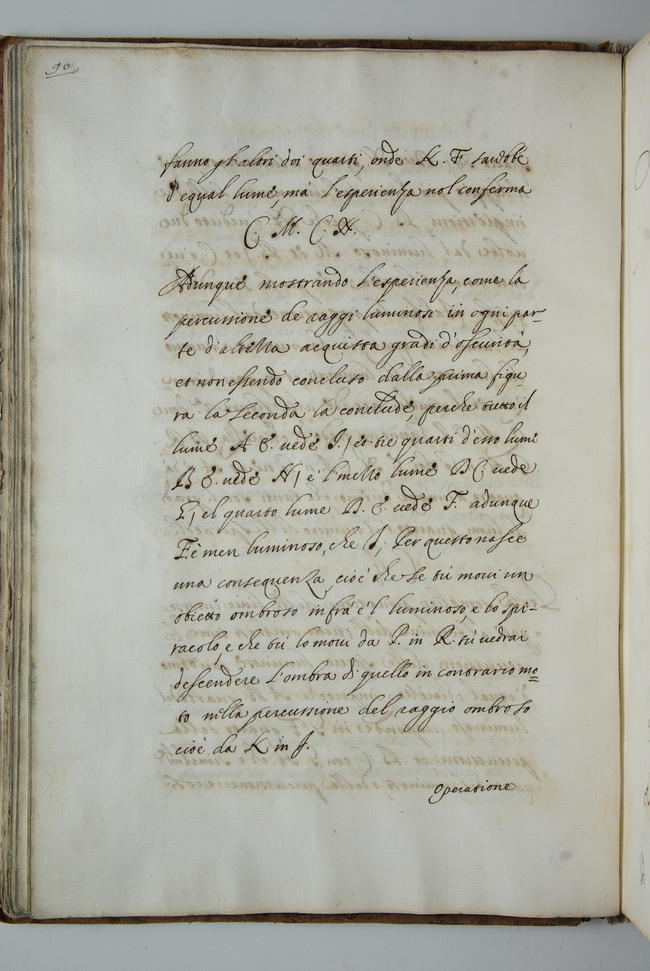 90
fanno gl'altri doi quarti, onde K. F. sarebe
d'equal lume, mà l'esperienza nol conferma
C. M. C. N.
Adunque mostrando l'esperienza, come la
percussione de raggi luminosi in ogni par-
te d'altezza acquista gradi d'oscurità,
et non essendo concluso dalla prima figu-
ra la seconda la conclude, perche tutto il
lume A E. vede I./ et tre quarti d'esso lume
B E. vede H/ e l'mezzo lume B C vede
G/ el quarto lume B. E. vede F. adunque
F. è men luminoso, che I; Per questo nasce
una consequenza, cioè che se tù movi un
obietto ombroso infrà e'l luminoso, e lo spi-
racolo, e che tù lo movi da P. in R. tù vedrai
descendere l'ombra di quello in contrario mo=
to nella percussione del raggio ombroso
cioè da K in I.
Operatione